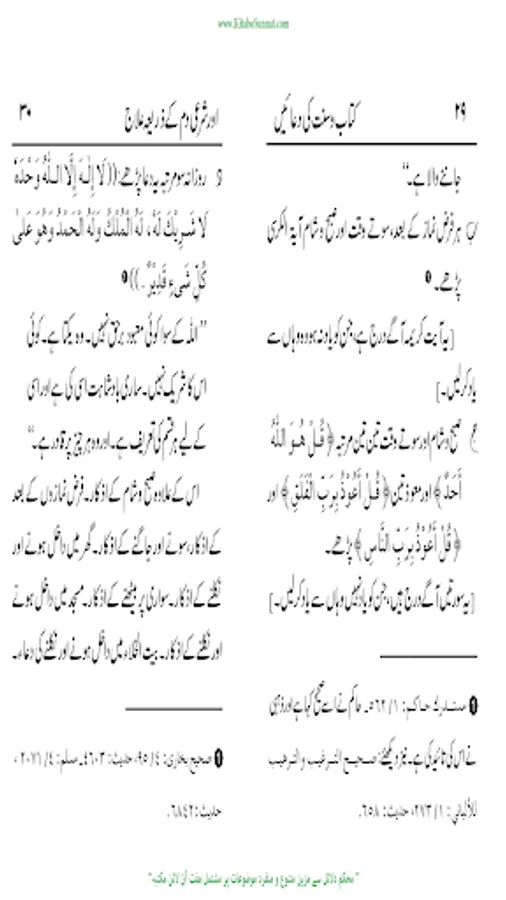 www.KitaboSunnat.com
کتاب وسنت کی دعائیں ۲۹
جاننے والا ہے۔“
ب ہر فرض نماز کے بعد، سوتے وقت اور صبح و شام آیۃ الکرسی
پڑھے۔ ❶
[یہ آیت کریمہ آگے درج ہے، جن کو یاد نہ ہو وہ وہاں سے
یاد کر لیں۔]
ج صبح و شام اور سوتے وقت تین تین مرتبہ ﴿قُلْ هُوَ اللّٰهُ
أَحَدٌ﴾ اور معوذتین ﴿قُلْ أَعُوْذُ بِرَبِّ الْفَلَقِ﴾ اور
﴿قُلْ أَعُوْذُ بِرَبِّ النَّاسِ﴾ پڑھے۔
[یہ سورتیں آگے درج ہیں، جن کو یاد نہیں وہاں سے یاد کر لیں۔]
❶ مستدرك حاكم: ۱/ ۵۶۲۔ حاکم نے اسے صحیح کہا ہے اور ذہبی
نے اس کی تائید کی ہے۔ نیز دیکھئے: صحيح الترغيب والترهيب
للألباني: ۱/ ۲۷۳، حدیث: ۶۵۸.
اور شرعی دم کے ذریعہ علاج ۳۰
و روزانہ سو مرتبہ یہ دعا پڑھے: ((لَا إِلٰهَ إِلَّا اللّٰهُ وَحْدَهٗ
لَا شَرِيْكَ لَهٗ، لَهُ الْمُلْكُ وَلَهُ الْحَمْدُ وَهُوَ عَلىٰ
كُلِّ شَيْءٍ قَدِيْرٌ.)) ❶
”اللہ کے سوا کوئی معبود برحق نہیں۔ وہ یکتا ہے۔ کوئی
اس کا شریک نہیں۔ ساری بادشاہت اسی کی ہے اور اسی
کے لیے ہر قسم کی تعریف ہے۔ اور وہ ہر چیز پر قادر ہے۔“
اس کے علاوہ صبح و شام کے اذکار۔ فرض نمازوں کے بعد
کے اذکار، سونے اور جاگنے کے اذکار۔ گھر میں داخل ہونے اور
نکلنے کے اذکار۔ سواری پر بیٹھنے کے اذکار۔ مسجد میں داخل ہونے
اور نکلنے کے اذکار۔ بیت الخلاء میں داخل ہونے اور نکلنے کی دعاء۔
❶ صحیح بخاری: ۴/ ۹۵، حدیث: ۴۶۰۳۔ مسلم: ۴/ ۲۰۷۱،
حدیث: ۶۸۴۲.
"محکم دلائل سے مزین متنوع و منفرد موضوعات پر مشتمل مفت آن لائن مکتبہ"